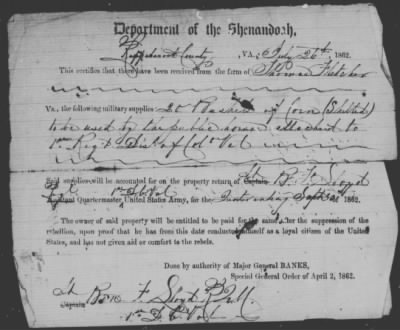 Department of the Shenandoah,
Rappahannock County VA., July 26th 1862.
This certifies that there has been received from the farm of Thomas Fletcher
VA., the following military supplies 25 Bushels of Corn (Shelled)
to be used by the public horses attached to
1st Regt Dist of Col Vol
Said supplies will be accounted for on the property return of Captain B. F. Lloyd
1st Vol
Assistant Quartermaster United States Army, for the ending Sept 30 1862.
The owner of said property will be entitled to be paid for the same after the suppression of the
rebellion, upon proof that he has from this date conducted himself as a loyal citizen of the United
States, and has not given aid or comfort to the rebels.
Done by authority of Major General BANKS,
Special General Order of April 2, 1862.
Lt F. Lloyd R.Q.M.
Captain 1st D.C. Vol